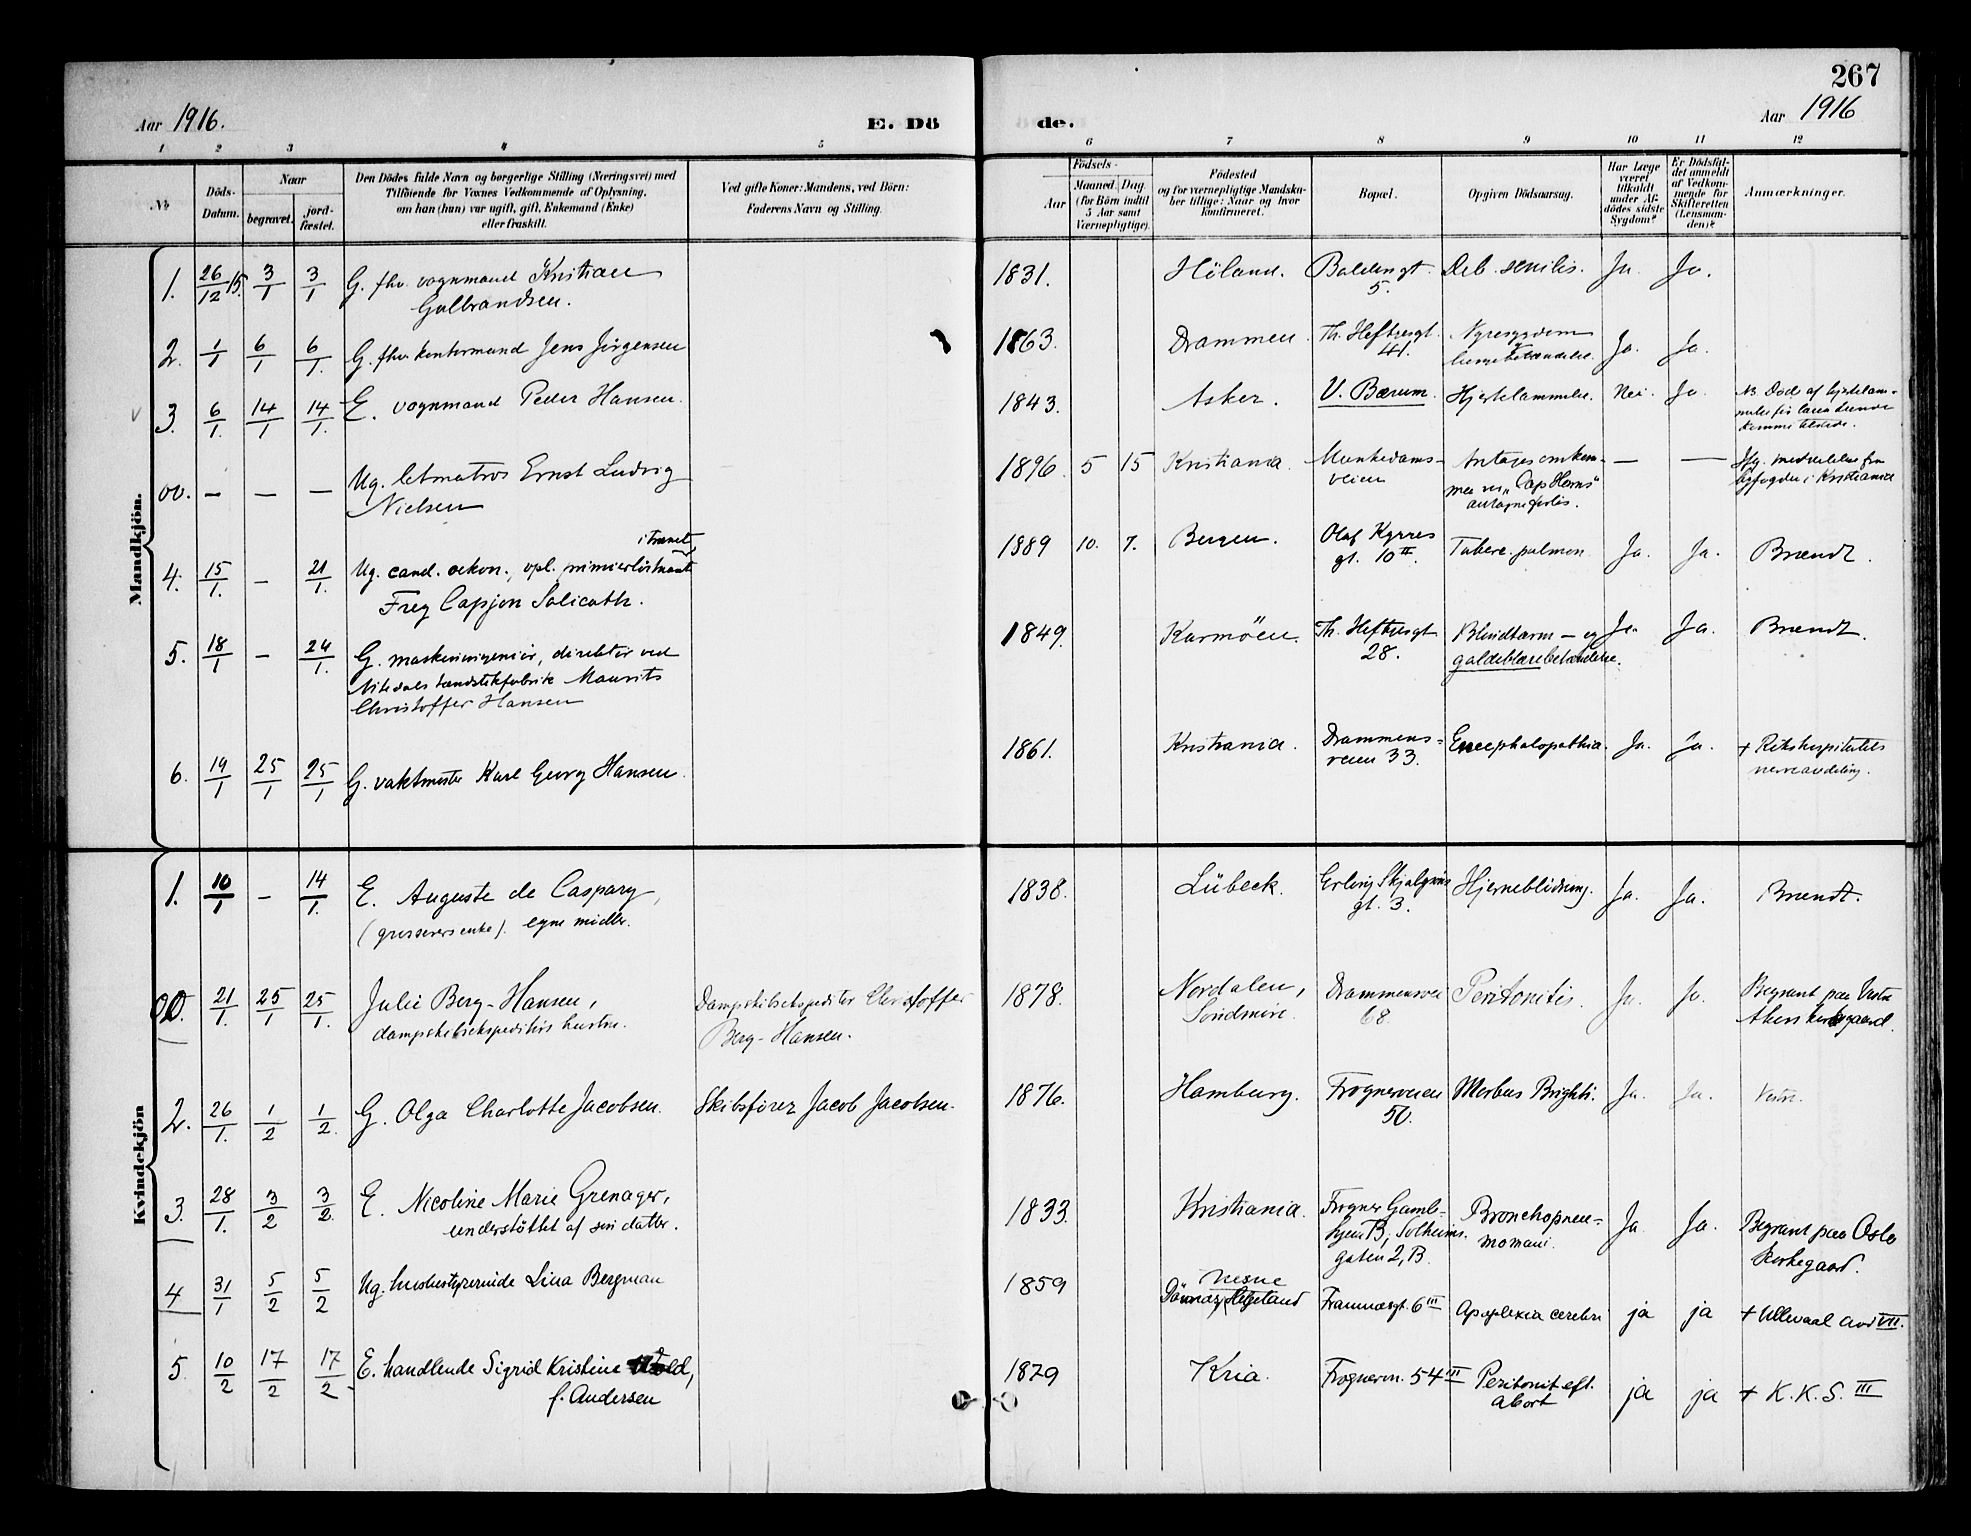 267
Aar 1916.
E. Dö
de.
Aar 1916
1 2 3 4 5 6 7 8 9 10 11 12
No
Döds-Datum.
Naar
begravet.
jord-fæstet.
Den Dödes fulde Navn og borgerlige Stilling (Næringsvei) med
Tilföiende for Voxnes Vedkommende af Oplysning,
om han (hun) var ugift, gift, Enkemand (Enke)
eller fraskilt.
Ved gifte Koner: Mandens, ved Börn:
Faderens Navn og Stilling.
Födsels-
Aar
Maaned. Dag.
(for Börn indtil
5 Aar samt
Værnepligtige).
Födested
og for værnepligtige Mandska-
ber tillige: Naar og hvor
konfirmeret.
Bopæl.
Opgiven Dödsaarsag.
Har Læge
været
tilkaldt
under Af-
dödes sidste
Sygdom?
Er Dödsfal-
det anmeldt
af Vedkom-
mende for
Skifteretten
(Lensman-
den)?
Anmærkninger.
Mandkjön.
1. 26/12 15. 3/1 3/1 G. fhv. vognmand Kristian
Gulbrandsen.
1831. Höland. Baldersgt. 5. Deb. senilis. Ja. Ja.
2. 1/1 6/1 6/1. G. fhv. kontormand Jens Jörgensen
1863. Drammen. Th. Heftyesgt. 41. Nyresygdom
lungebetændelse. Ja. Ja.
3. 6/1. 14/1 14/1. E. vognmand Peder Hansen.
1843. Asker. V. Bærum. Hjertelammelse. Nei. Ja. NB Död af hjertelam-
melse för læge kunde
komme tilstede.
00. — — — Ug. letmatros Ernst Ludvig
Nielsen
1896. 5 15 Kristiania. Munkedams-
veien Antages omkom-
met ved "Cap Horns"
— — Ifg. meddelelse fra
byfogden i Kristiania
4. 15/1. — 21/1. Ug. cand. oekon., opl. premierlöitnant
i trænet
Frey Capjon Salicath.
1889 10. 7. Bergen. Olaf Kyrres
gt. 10 II. Tuberc. pulmon. Ja. Ja. Brændt.
5. 18/1 — 24/1. G. maskiningeniör, direktör ved
Nitedals tændstikfabrik Maurits
Christoffer Hansen
1849. Karmöen. Th. Heftyesgt
28. Blindtarm- og
galdeblærebetændelse. Ja. Ja. Brændt.
6. 19/1 25/1 25/1 G. vaktmester Karl Georg Hansen.
1861. Kristiania. Drammens-
veien 33. Encephalopathia. Ja. Ja. + Rikshospitalets
nerveavdeling.
Kvindekjön
1. 10/1 — 14/1. E. Auguste de Caspary,
(grosserersenke). egne midler.
1838. Lübeck. Erling Skjalgsöns
gt. 3. Hjerneblödning. Ja. Ja. Brændt.
00. 21/1. 25/1 25/1. Julie Berg-Hansen,
dampskibsekspeditörs hustru.
Dampskibsekspeditör Christoffer
Berg-Hansen.
1878. Nordalen,
Söndmöre. Drammensvei
68. Peritonitis. Ja. Ja. Begravet paa Vestre
Akers kirkegaard.
2. 26/1. 1/2 1/2. G. Olga Charlotte Jacobsen. Skibsförer Jacob Jacobsen.
1876. Hamburg. Frogneveien
50. Morbus Brighti. Ja. Ja. Vestre.
3. 28/1. 3/2 3/2. E. Nicoline Marie Grenager,
understöttet af sin datter.
1833. Kristiania. Frogner Gamle-
hjem B, Solheims-
gaten 2, B. Bronchopneu-
moni. Ja. Ja. Begravet paa Oslo
kirkegaard.
4 31/1 5/2 5/2 Ug. husbestyrerinde Lina Bergman
1859 Nesne
Dönnæs, Helgeland Framnæsgt. 6 III Apoplexia cerebri ja ja + Ullevaal avd VII.
5 10/2 17/2 17/2 E. handlende Sigrid Kristine
f. Andersen
1879 Kria. Frognervn. 54 III Peritonit eft.
abort ja ja + K. K. S. III